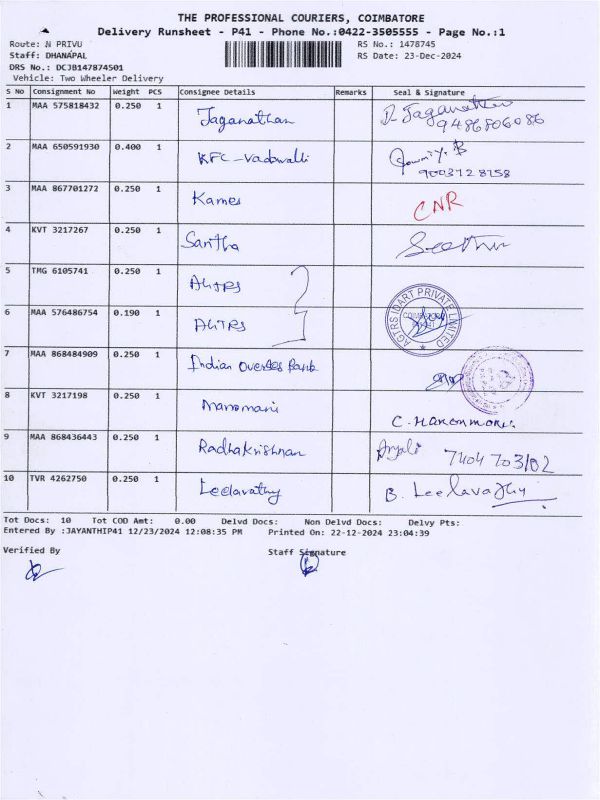 THE PROFESSIONAL COURIERS, COIMBATORE
Delivery Runsheet - P41 - Phone No.:0422-3505555 - Page No.:1
Route: N PRIVU RS No.: 1478745
Staff: DHANAPAL RS Date: 23-Dec-2024
DRS No.: DCJB147874501
Vehicle: Two Wheeler Delivery
S No Consignment No Weight PCS Consignee Details Remarks Seal & Signature
1 MAA 575818432 0.250 1 Jaganathan D. Jaganathan
9486806086
2 MAA 650591930 0.400 1 KFC-Vadavalli
9003728758
3 MAA 867701272 0.250 1 Kames CNR
4 KVT 3217267 0.250 1 Santha
5 TMG 6105741 0.250 1 AGTRS
6 MAA 576486754 0.190 1 AGTRS AGTRS IDART PRIVATE LIMITED
7 MAA 868484909 0.250 1 Indian Overses Bank
8 KVT 3217198 0.250 1 Manomani
9 MAA 868436443 0.250 1 Radhakrishnan Anjali
10 TVR 4262750 0.250 1 Leelavathy B. Leelavathy
Tot Docs: 10 Tot COD Amt: 0.00 Delvd Docs: Non Delvd Docs: Delvy Pts:
Entered By :JAYANTHIP41 12/23/2024 12:08:35 PM Printed On: 22-12-2024 23:04:39
Verified By Staff Signature